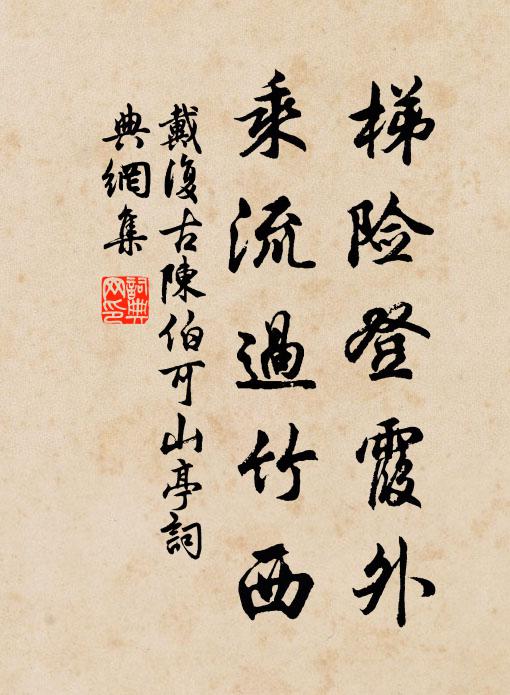 梯险登霞外
乘流過竹西
戴復古陳伯可山亭詞
典網集
詞典網印